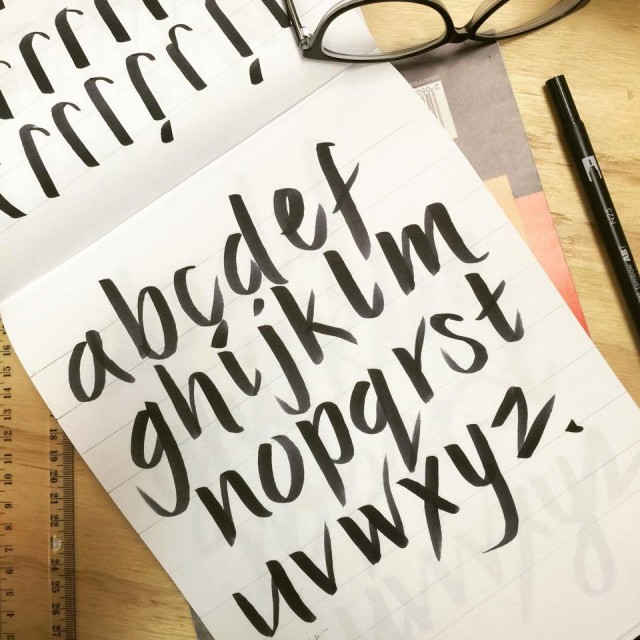 abcdef
ghijklm
nopqrst
uvwxyz.